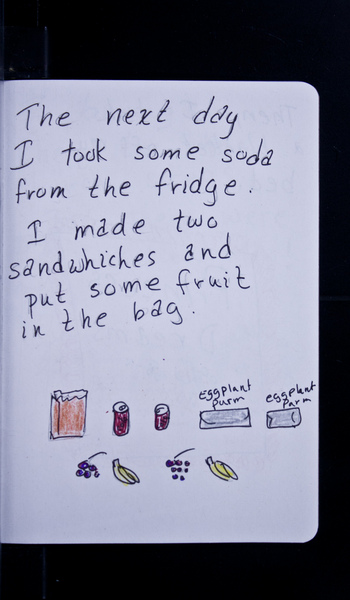 The next day
I took some soda
from the fridge.
I made two
sandwhiches and
put some fruit
in the bag.
eggplant
parm
eggplant
parm